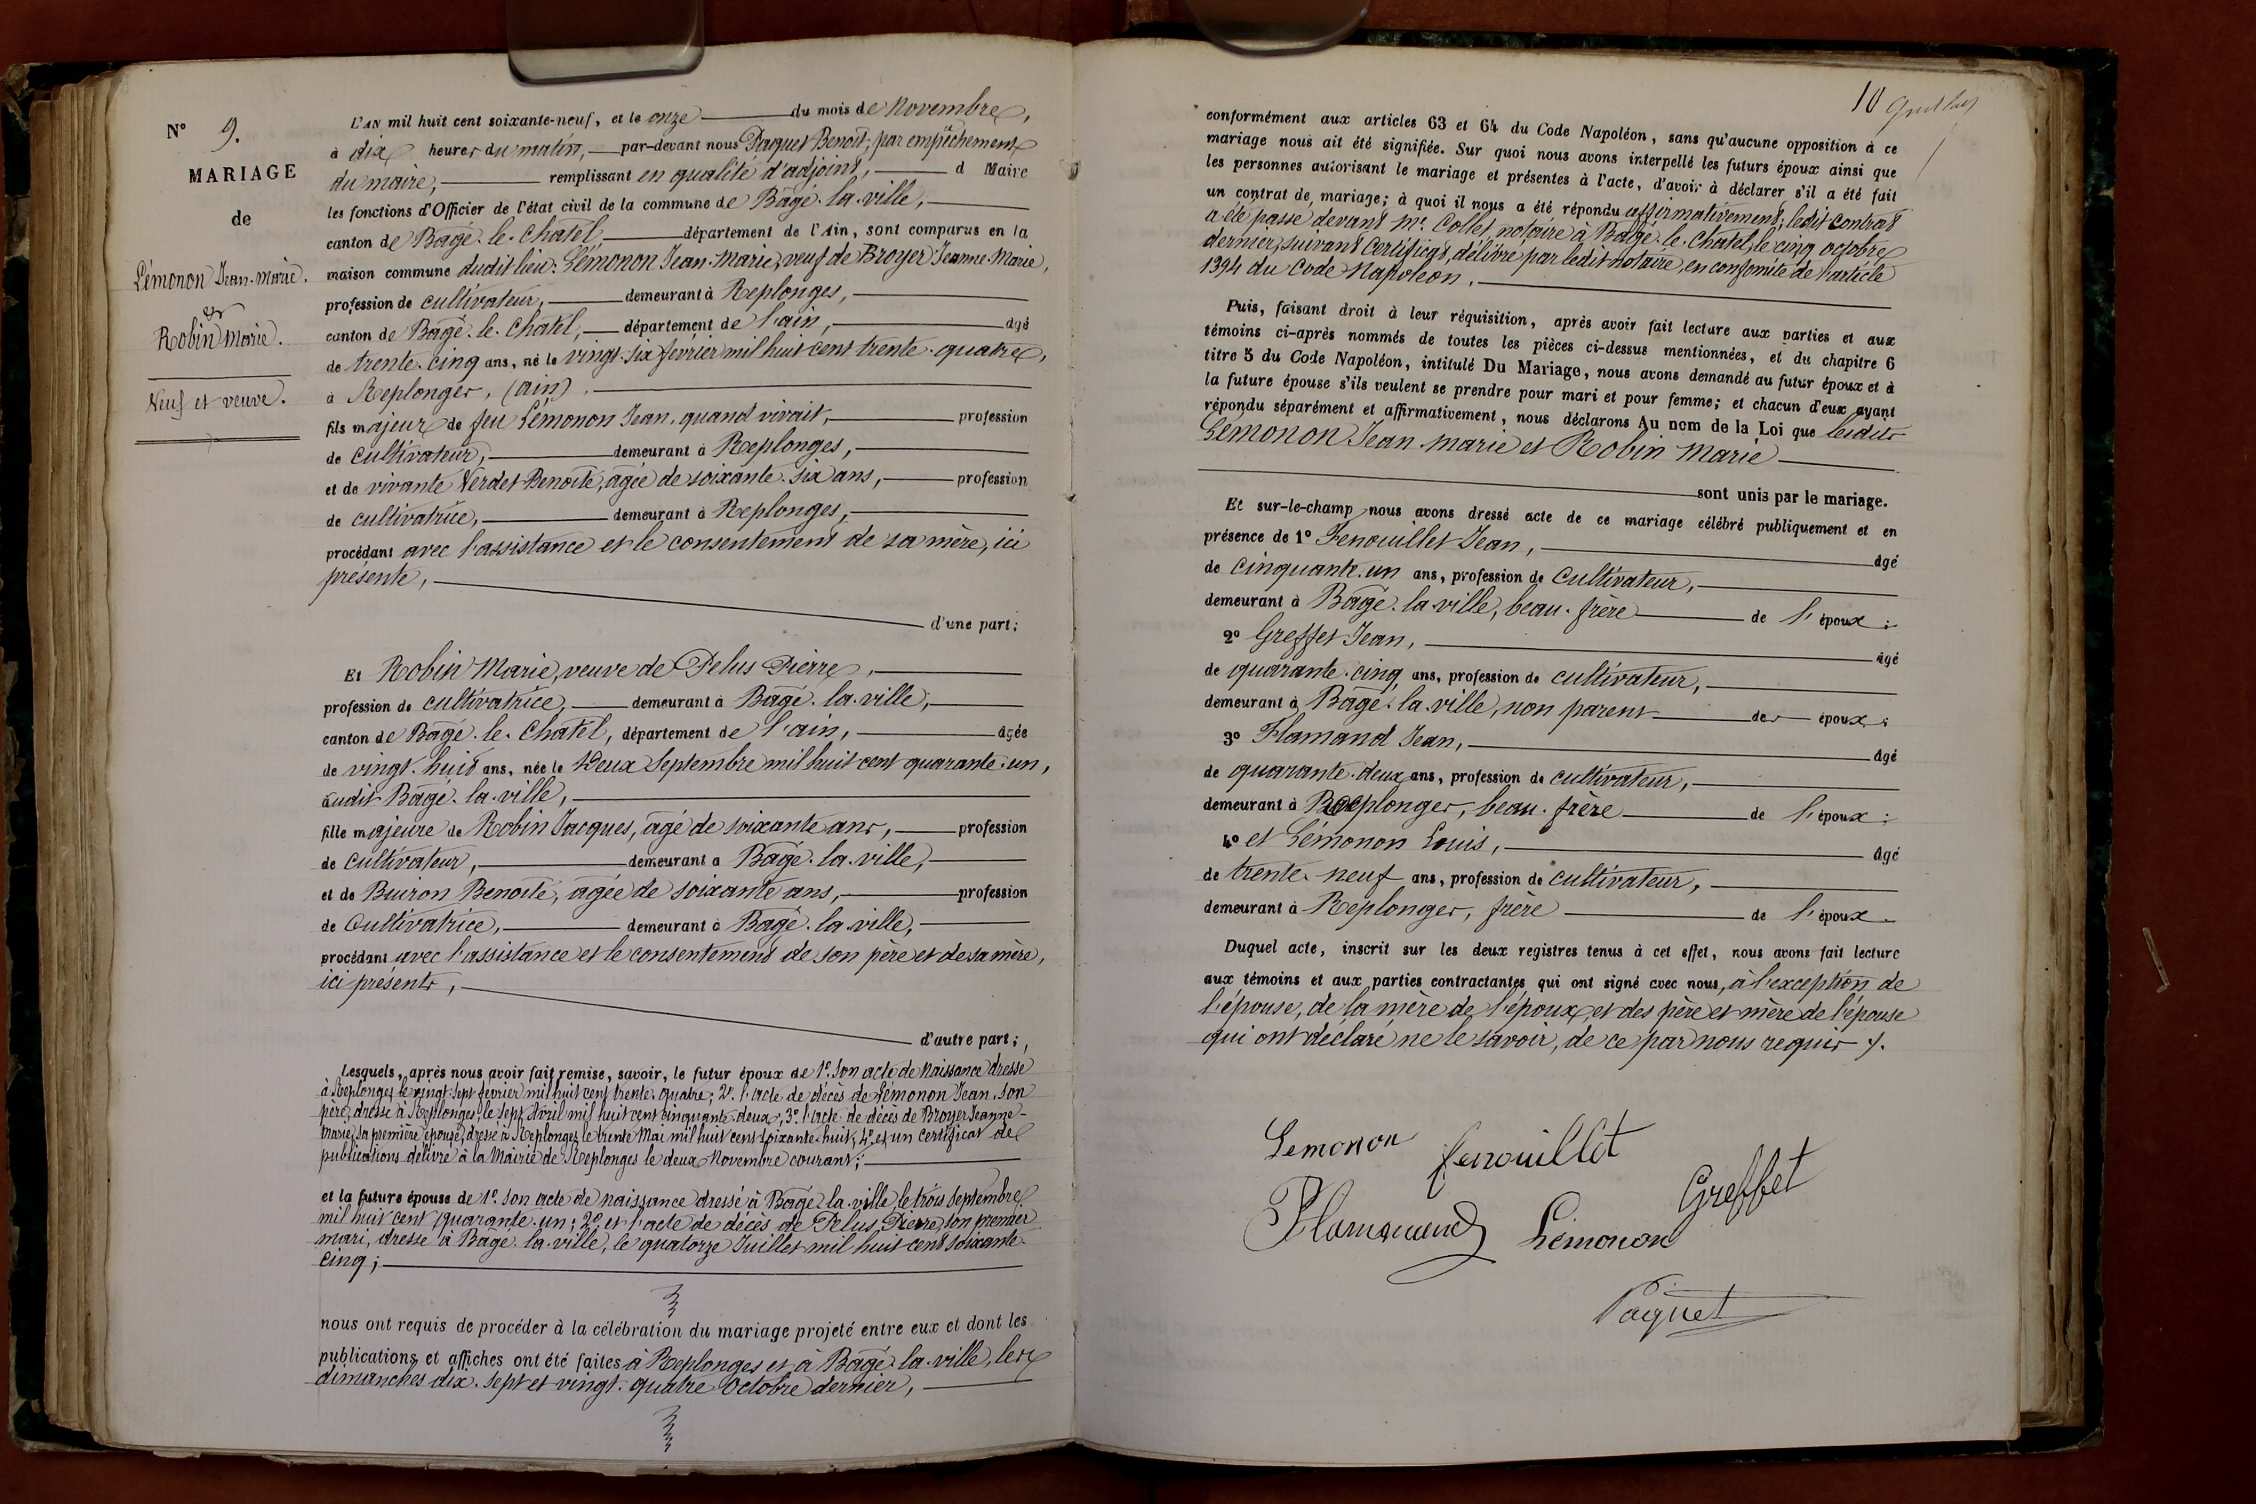 N° 9.
MARIAGE
de
Lémonon Jean-Marie.
&
Robin Marie.
Veuf et veuve.
L'AN mil huit cent soixante-neuf, et le onze du mois de Novembre,
à dix heures du matin, par-devant nous Paquet Benoit, par empêchement
du maire, remplissant en qualité d'adjoint, d Maire
les fonctions d'Officier de l'état civil de la commune de Bâgé-la-ville,
canton de Bâgé-le-Chatel, département de l'Ain, sont comparus en la
maison commune dudit lieu: Lémonon Jean-Marie, veuf de Broyer Jeanne Marie,
profession de cultivateur, demeurant à Replonges,
canton de Bâgé-le-Chatel, département de l'ain, âgé
de trente-cinq ans, né le vingt-six février mil huit cent trente-quatre,
à Replonges, (ain).
fils majeur de feu Lémonon Jean, quand vivait, profession
de cultivateur, demeurant à Replonges,
et de vivante Verdet Benoite, âgée de soixante-six ans, profession
de cultivatrice, demeurant à Replonges,
procédant avec l'assistance et le consentement de sa mère, ici
présente,
d'une part;
Et Robin Marie, veuve de Pelus Pierre,
profession de cultivatrice, demeurant à Bâgé-la-ville,
canton de Bâgé-le-Chatel, département de l'ain, âgée
de vingt-huit ans, née le Deux Septembre mil huit cent quarante-un,
audit Bâgé-la-ville,
fille majeure de Robin Jacques, âgé de soixante ans, profession
de cultivateur, demeurant à Bâgé-la-ville,
et de Buiron Benoite, âgée de soixante ans, profession
de Cultivatrice, demeurant à Bâgé-la-ville,
procédant avec l'assistance et le consentement de son père et de sa mère,
ici présents,
d'autre part;
Lesquels, après nous avoir fait remise, savoir, le futur époux de 1° Son acte de Naissance dressé
à Replonges le vingt-sept février mil huit cent trente-quatre; 2° l'acte de décès de Lémonon Jean, son
père, dressé à Replonges, le sept Avril mil huit cent cinquante-deux; 3° l'acte de décès de Broyer Jeanne-
Marie, sa première épouse, dressé à Replonges le trente Mai mil huit cent soixante-huit; 4° et un certificat de
publications délivré à la Mairie de Replonges le deux Novembre courant;
et la future épouse de 1° son acte de naissance dressé à Bâgé-la-ville, le trois Septembre
mil huit cent quarante-un; 2° et l'acte de décès de Pelus Pierre, son premier
mari, dressé à Bâgé-la-ville, le quatorze Juillet mil huit cent soixante-
cinq;
nous ont requis de procéder à la célébration du mariage projeté entre eux et dont les
publications et affiches ont été faites à Replonges et à Bâgé-la-ville, les
dimanches dix-sept et vingt-quatre Octobre dernier,
10
conformément aux articles 63 et 64 du Code Napoléon, sans qu'aucune opposition à ce
mariage nous ait été signifiée. Sur quoi nous avons interpellé les futurs époux ainsi que
les personnes autorisant le mariage et présentes à l'acte, d'avoir à déclarer s'il a été fait
un contrat de mariage; à quoi il nous a été répondu affirmativement; ledit contrat
a été passé devant Me Collet notaire à Bâgé-le-Chatel, le cinq octobre
dernier, suivant Certificat, délivré par ledit notaire, en conformité de l'article
1394 du Code Napoléon.
Puis, faisant droit à leur réquisition, après avoir fait lecture aux parties et aux
témoins ci-après nommés de toutes les pièces ci-dessus mentionnées, et du chapitre 6
titre 5 du Code Napoléon, intitulé Du Mariage, nous avons demandé au futur époux et à
la future épouse s'ils veulent se prendre pour mari et pour femme; et chacun d'eux ayant
répondu séparément et affirmativement, nous déclarons Au nom de la Loi que lesdits
Lémonon Jean-Marie et Robin Marie
sont unis par le mariage.
Et sur-le-champ nous avons dressé acte de ce mariage célébré publiquement et en
présence de 1° Fenouillet Jean, âgé
de cinquante-un ans, profession de Cultivateur,
demeurant à Bâgé-la-ville, beau-frère de l'époux;
2° Greffet Jean, âgé
de quarante-cinq ans, profession de cultivateur,
demeurant à Bâgé-la-ville, non parent des époux;
3° Flamand Jean, âgé
de quarante-deux ans, profession de cultivateur,
demeurant à Replonges, beau-frère de l'époux;
4° et Lémonon Louis, âgé
de trente-neuf ans, profession de cultivateur,
demeurant à Replonges, frère de l'époux.
Duquel acte, inscrit sur les deux registres tenus à cet effet, nous avons fait lecture
aux témoins et aux parties contractantes qui ont signé avec nous, à l'exception de
l'épouse, de la mère de l'époux, et des père et mère de l'épouse
qui ont déclaré ne le savoir, de ce par nous requis.
Lemonon fenouillet
Greffet
Flamand Lémonon
Paquet